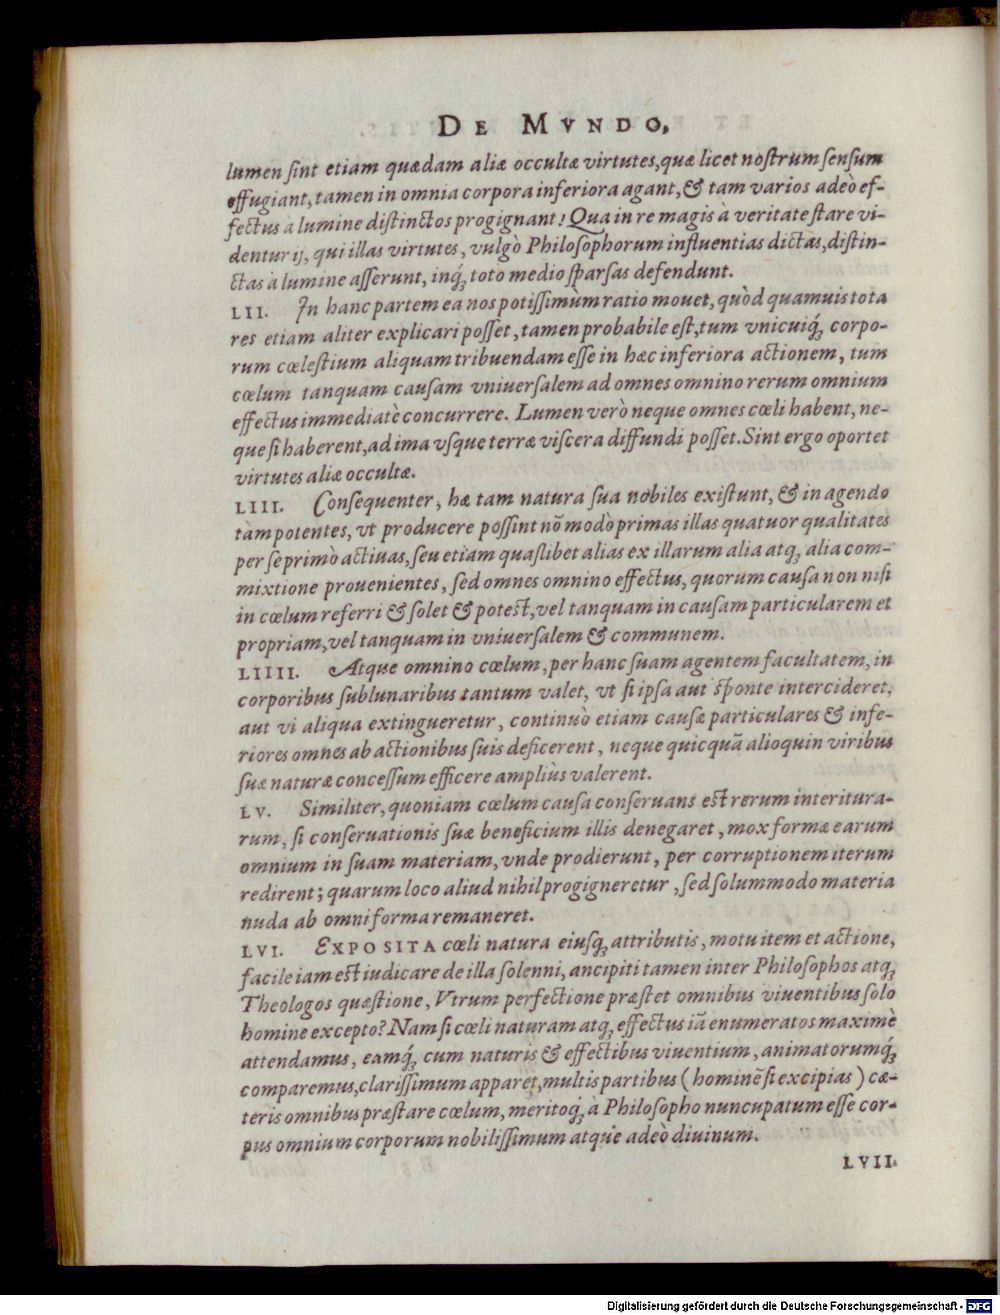 DE MVNDO,
lumen sint etiam quædam aliæ occultæ virtutes,quæ licet nostrum sensum
effugiant,tamen in omnia corpora inferiora agant,& tam varios adeò ef-
fectus à lumine distinctos progignant? Qua in re magis à veritate stare vi-
dentur ij, qui illas virtutes, vulgò Philosophorum influentias dictas,distin-
ctas à lumine asserunt, inq́; toto medio sparsas defendunt.
LII. In hanc partem ea nos potissimùm ratio mouet, quòd quamuis tota
res etiam aliter explicari posset, tamen probabile est,tum vnicuiq́; corpo-
rum cœlestium aliquam tribuendam esse in hæc inferiora actionem, tum
cœlum tanquam causam vniuersalem ad omnes omnino rerum omnium
effectus immediatè concurrere. Lumen verò neque omnes cœli habent, ne-
que si haberent,ad ima vsque terræ viscera diffundi posset. Sint ergo oportet
virtutes aliæ occultæ.
LIII. Consequenter, hæ tam natura sua nobiles existunt, & in agendo
tàm potentes, vt producere possint nō modò primas illas quatuor qualitates
per se primò actiuas, seu etiam quaslibet alias ex illarum alia atq; alia com-
mixtione prouenientes, sed omnes omnino effectus, quorum causa non nisi
in cœlum referri & solet & potest, vel tanquam in causam particularem et
propriam,vel tanquam in vniuersalem & communem.
LIIII. Atque omnino cœlum, per hanc suam agentem facultatem, in
corporibus sublunaribus tantum valet, vt si ipsa aut sponte intercideret,
aut vi aliqua extingueretur, continuò etiam causæ particulares & infe-
riores omnes ab actionibus suis deficerent, neque quicquā alioquin viribus
suæ naturæ concessum efficere ampliùs valerent.
LV. Similiter, quoniam cœlum causa conseruans est rerum interitura-
rum, si conseruationis suæ beneficium illis denegaret, mox formæ earum
omnium in suam materiam, vnde prodierunt, per corruptionem iterum
redirent; quarum loco aliud nihil progigneretur, sed solummodo materia
nuda ab omni forma remaneret.
LVI. EXPOSITA cœli natura eiusq; attributis, motu item et actione,
facile iam est iudicare de illa solenni, ancipiti tamen inter Philosophos atq;
Theologos quæstione, Vtrum perfectione præstet omnibus viuentibus solo
homine excepto? Nam si cœli naturam atq; effectus iā enumeratos maximè
attendamus, eamq́; cum naturis & effectibus viuentium, animatorumq́;
comparemus,clarissimum apparet,multis partibus (hominē si excipias) cæ-
teris omnibus præstare cœlum, meritoq́; à Philosopho nuncupatum esse cor-
pus omnium corporum nobilissimum atque adeò diuinum.
LVII.
Digitalisierung gefördert durch die Deutsche Forschungsgemeinschaft - DFG